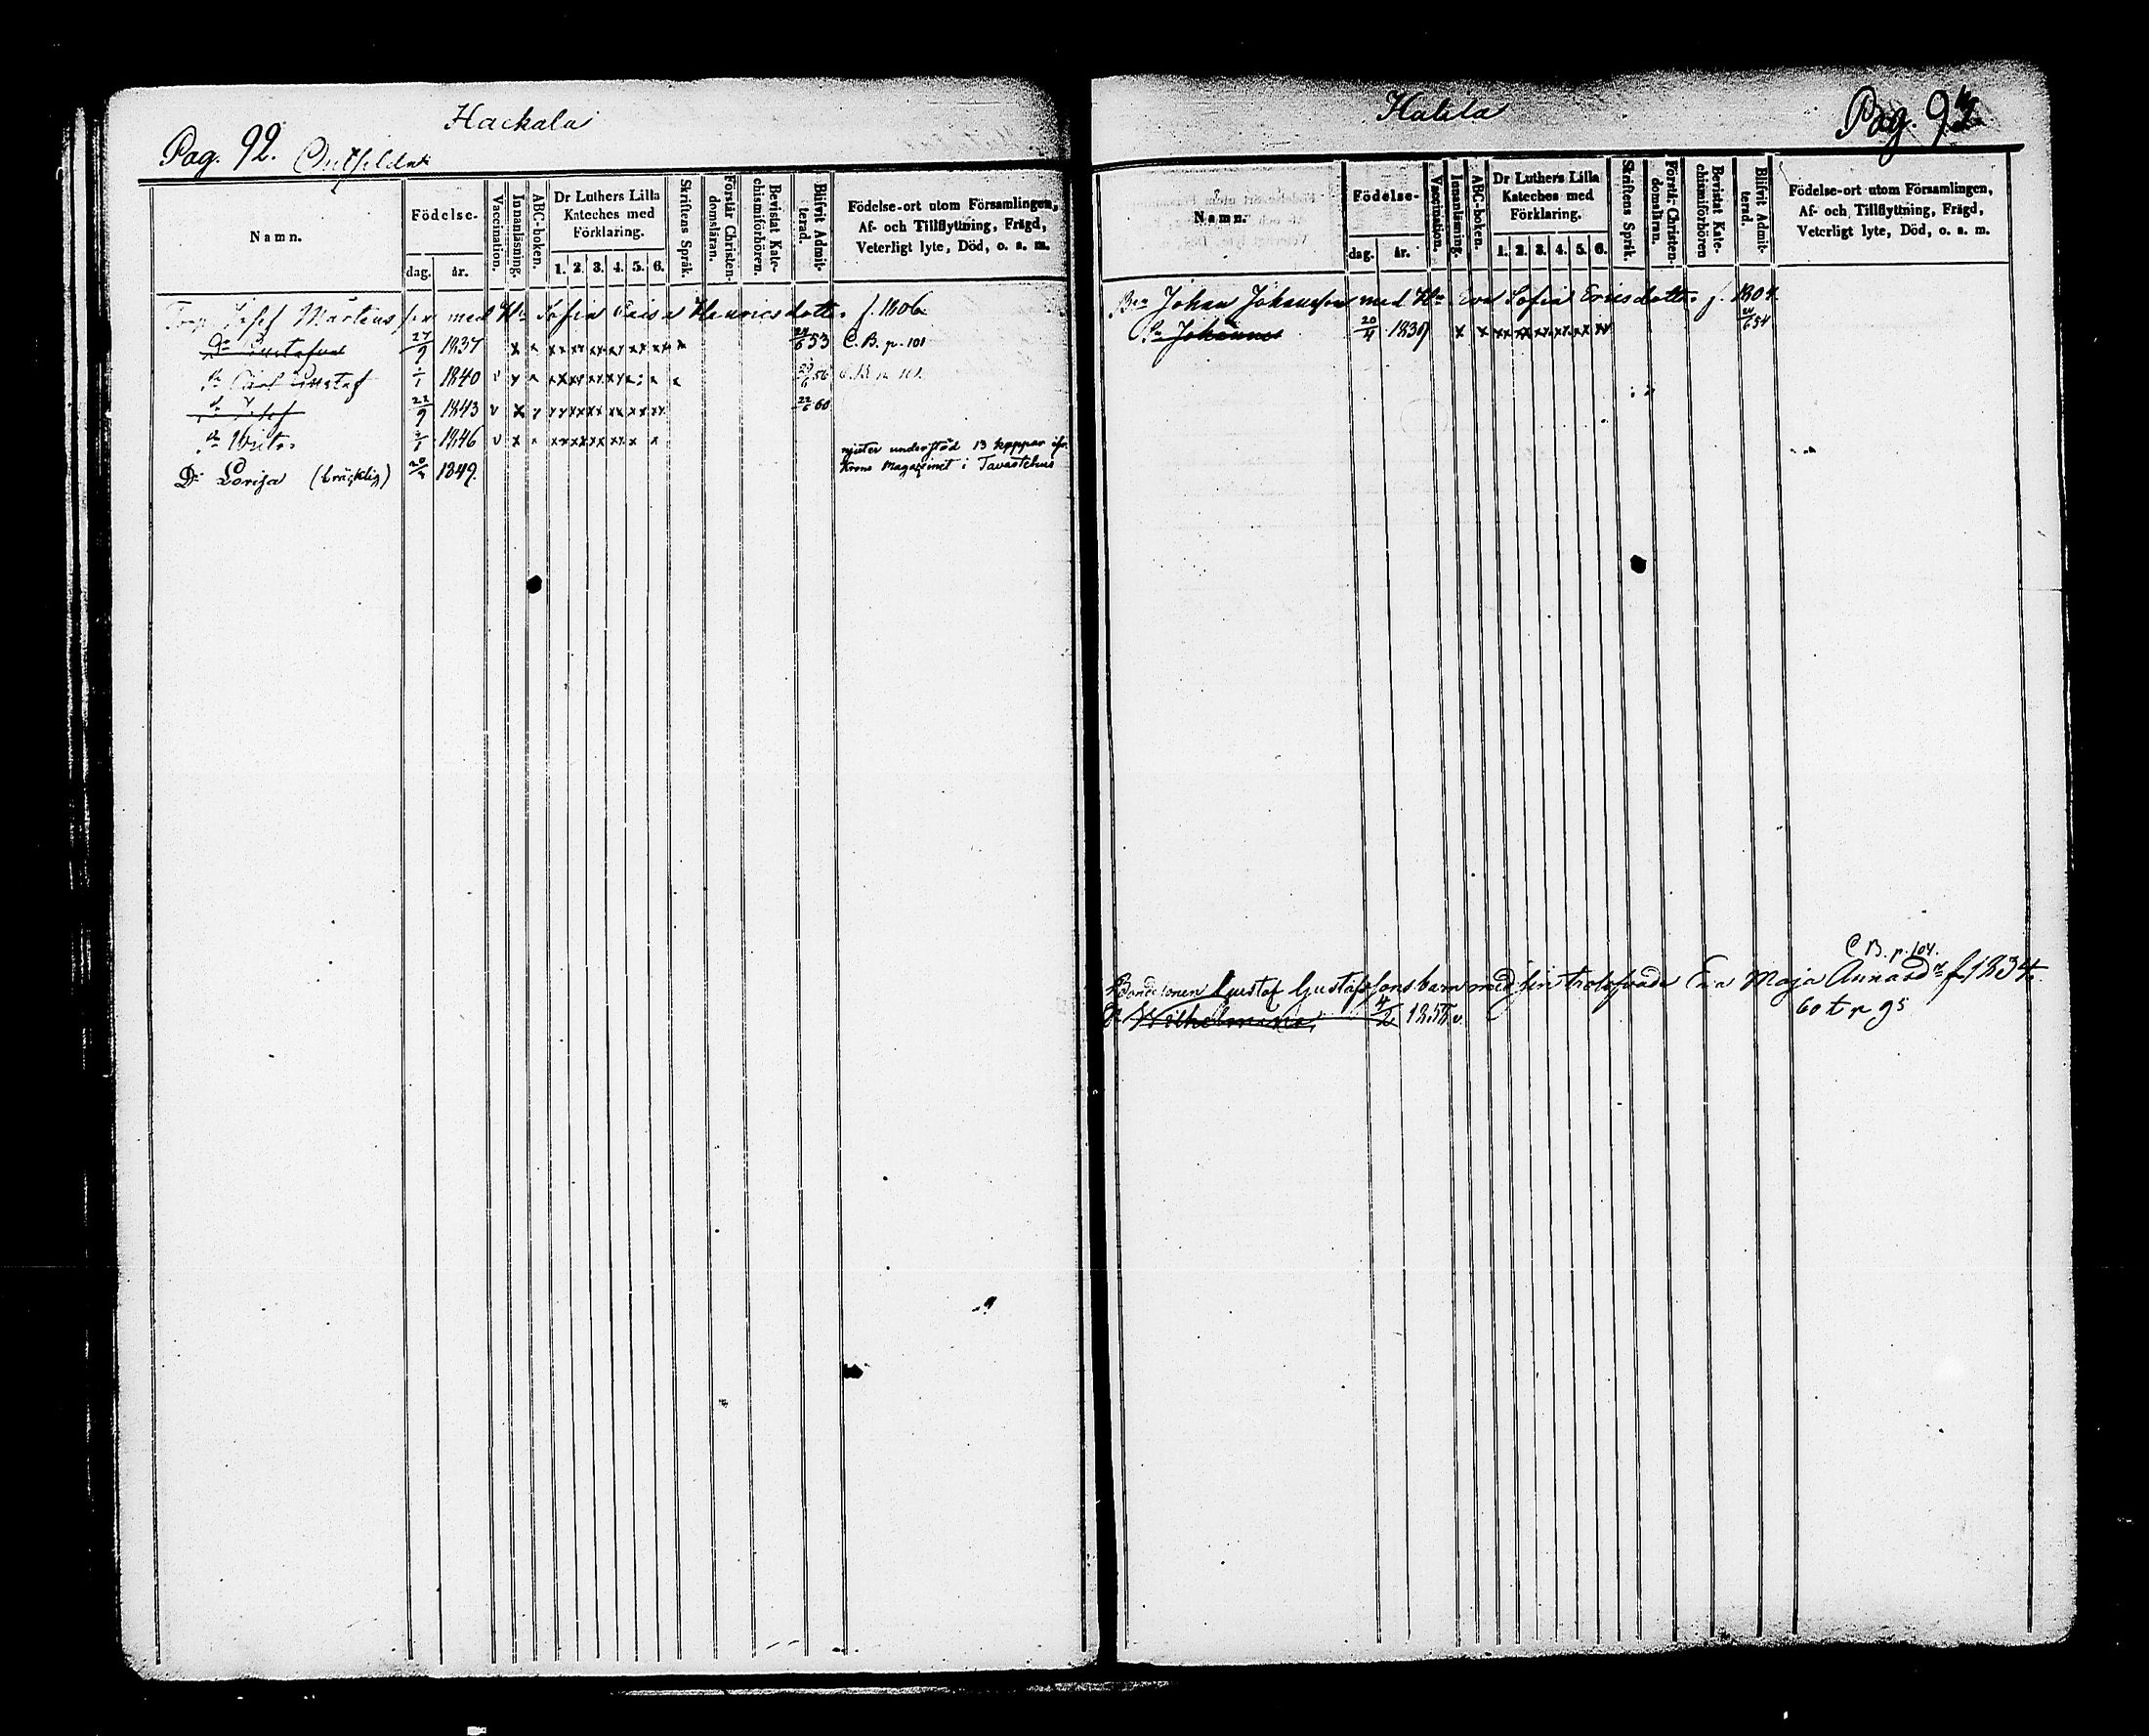 Hackala
Pag. 92.
Namn.
Födelse-
dag.
år.
Vaccination.
Innanläsning.
ABC-boken.
Dr Luthers Lilla Kateches med Förklaring.
1. 2. 3. 4. 5. 6.
Skriftens Språk.
Förstår Christendomsläran.
Bevistat Katechismiförhören.
Blifvit Admitterad.
Födelse-ort utom Församlingen,
Af- och Tillflyttning, Frägd,
Veterligt lyte, Död, o. s. m.
Torp. Josef Mårtensson med H. Sofia Caisa Henricsdotter f. 1806
Gustafva 27/9 1837 x 53 C. B. p. 101
Carl Gustaf 1/1 1840 v 56
Josef 22/9 1843 v x 22/6 60
1846 v x
D. Lovisa (bräcklig) 1849.
njuter understöd 13 kappar ifr.
Krons Magazinet i Tavastehus
Halila
Pag. 93
Namn.
Födelse-
dag.
år.
Vaccination.
Innanläsning.
ABC-boken.
Dr Luthers Lilla Kateches med Förklaring.
1. 2. 3. 4. 5. 6.
Skriftens Språk.
Förstår Christendomsläran.
Bevistat Katechismiförhören
Blifvit Admitterad.
Födelse-ort utom Församlingen,
Af- och Tillflyttning, Frägd,
Veterligt lyte, Död, o. s. m.
Johan Johansson med H. Eva Sofia Ericsdotter f. 1804.
Johannes 20/4 1839 x x 54
C. B. p. 104.
Bondsonen Gustaf Gustafssons barn med sin trolofvade Eva Maja Annasdr f 1834
Wilhelmina 4/2 60 t p 95